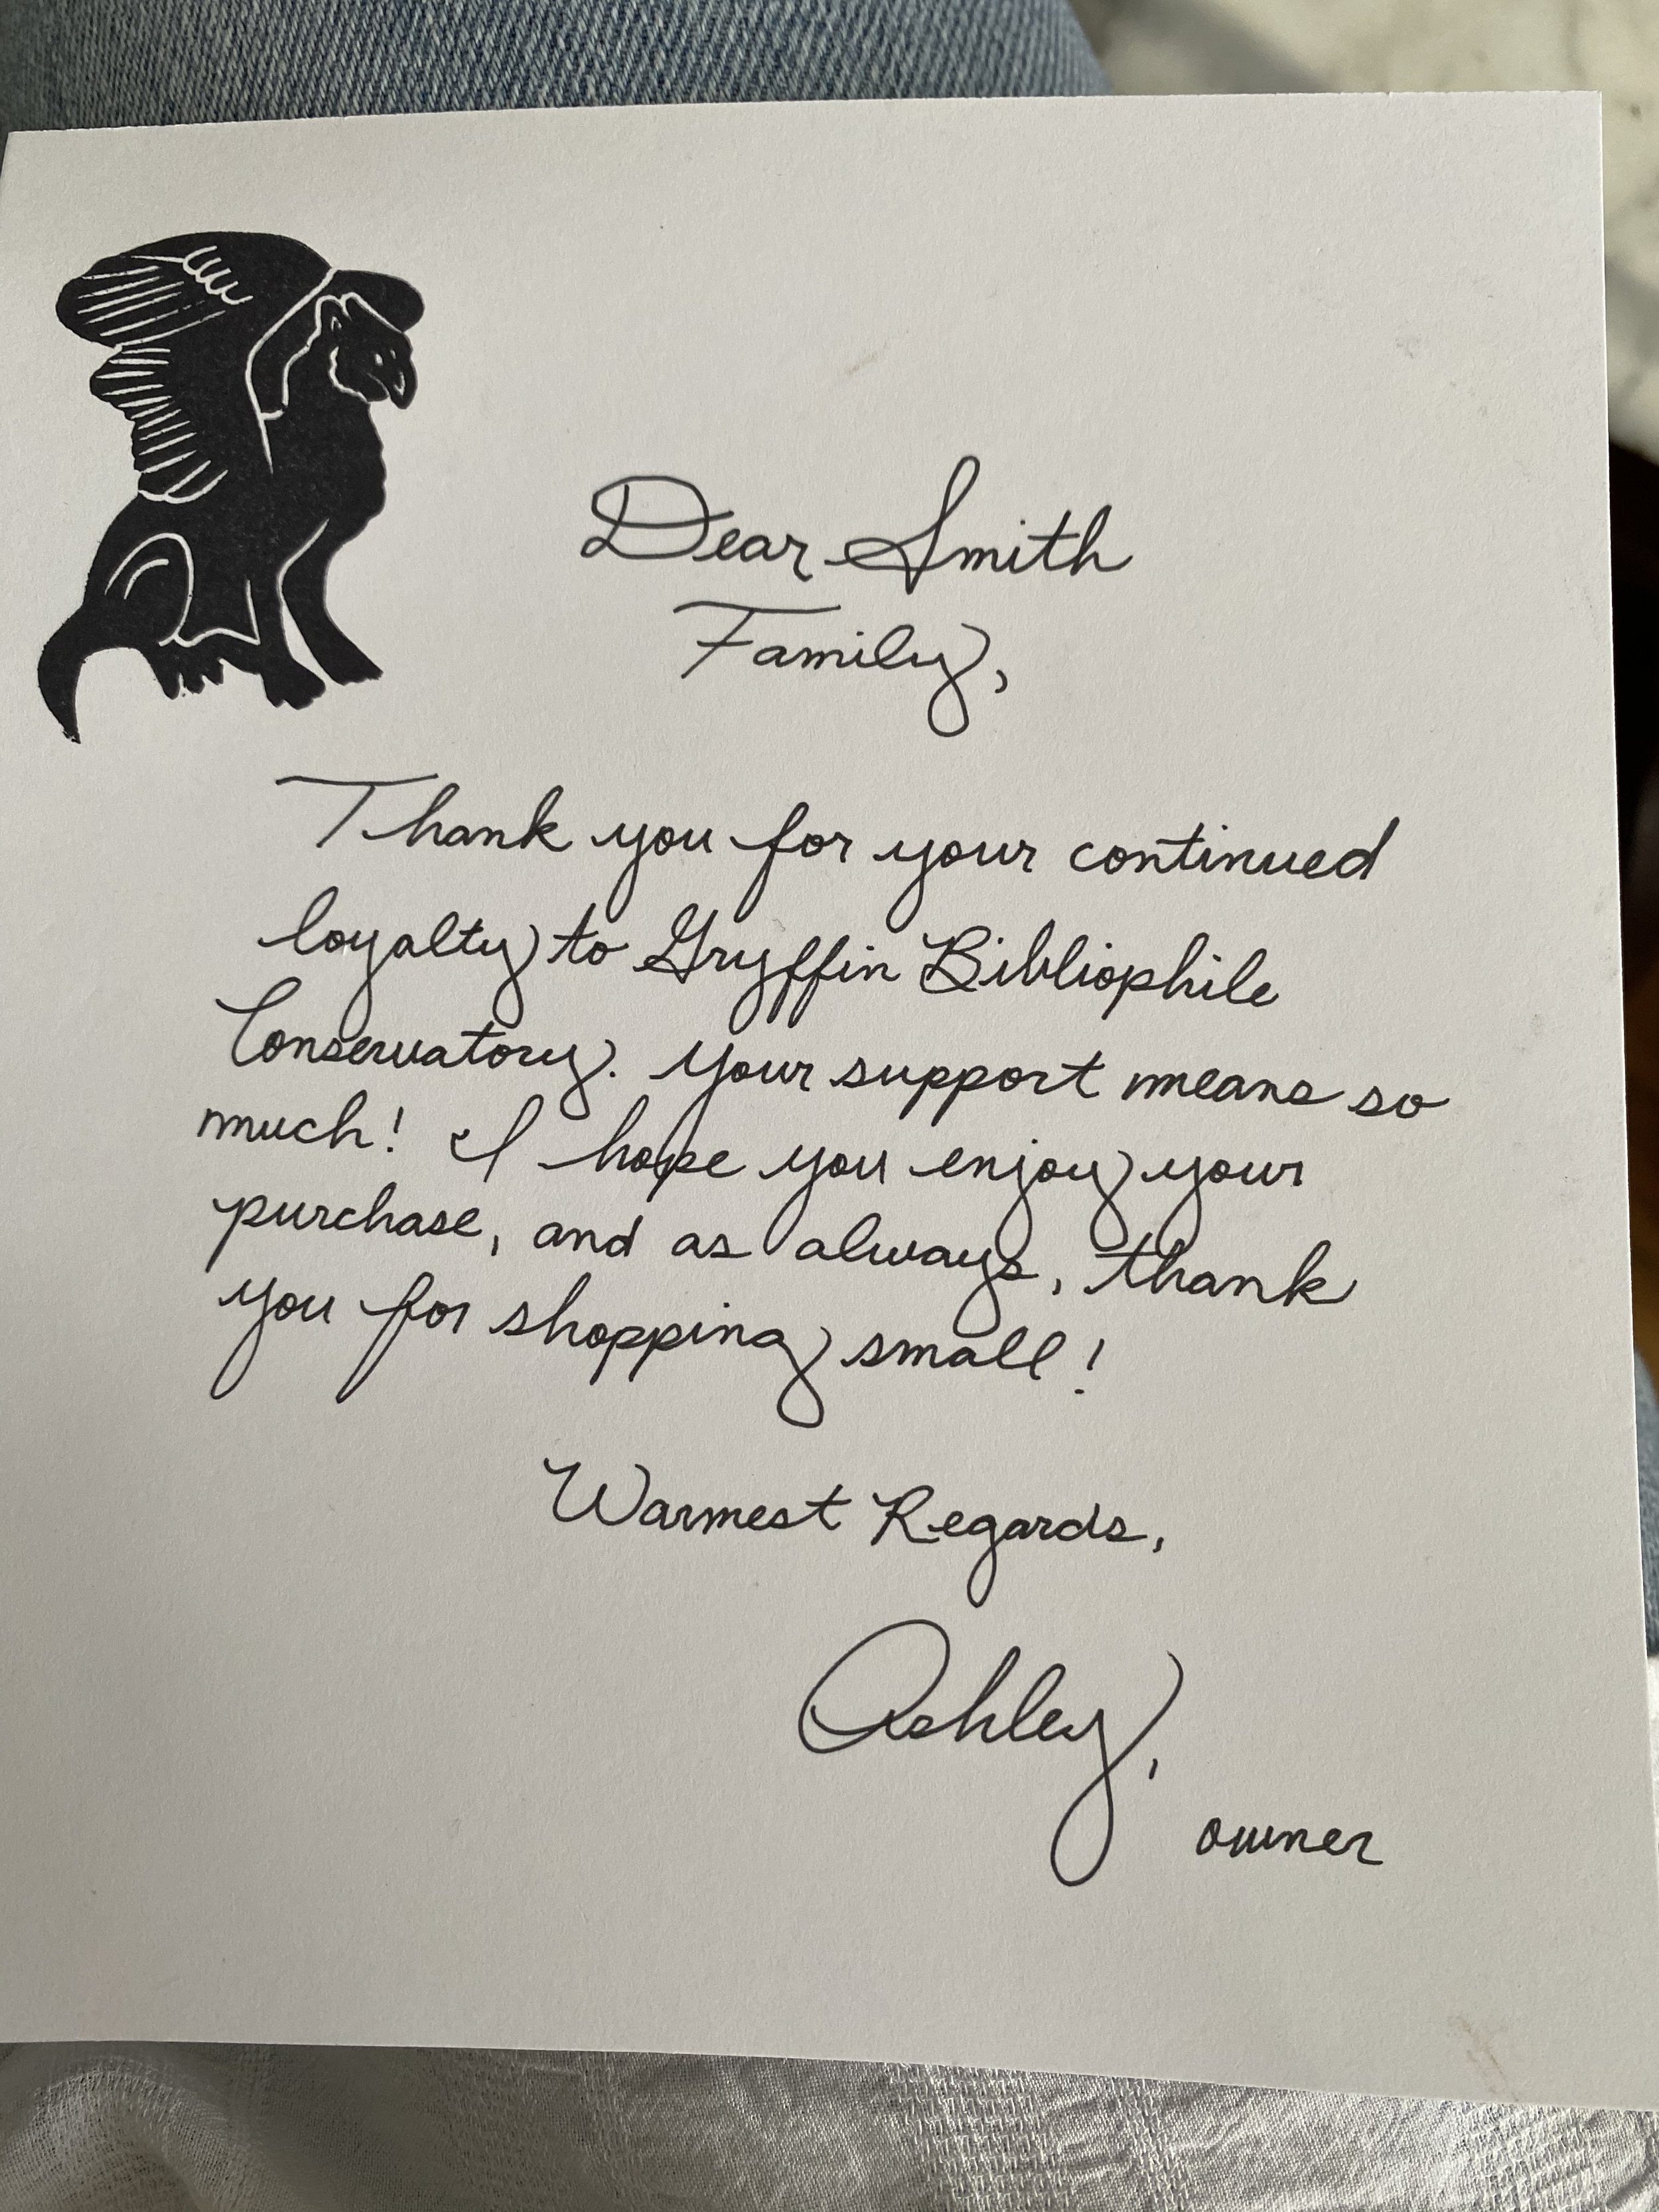 Dear Smith
Family,
Thank you for your continued
loyalty to Gryffin Bibliophile
Conservatory. Your support means so
much! I hope you enjoy your
purchase, and as always, thank
you for shopping small!
Warmest Regards,
Ashley,
owner